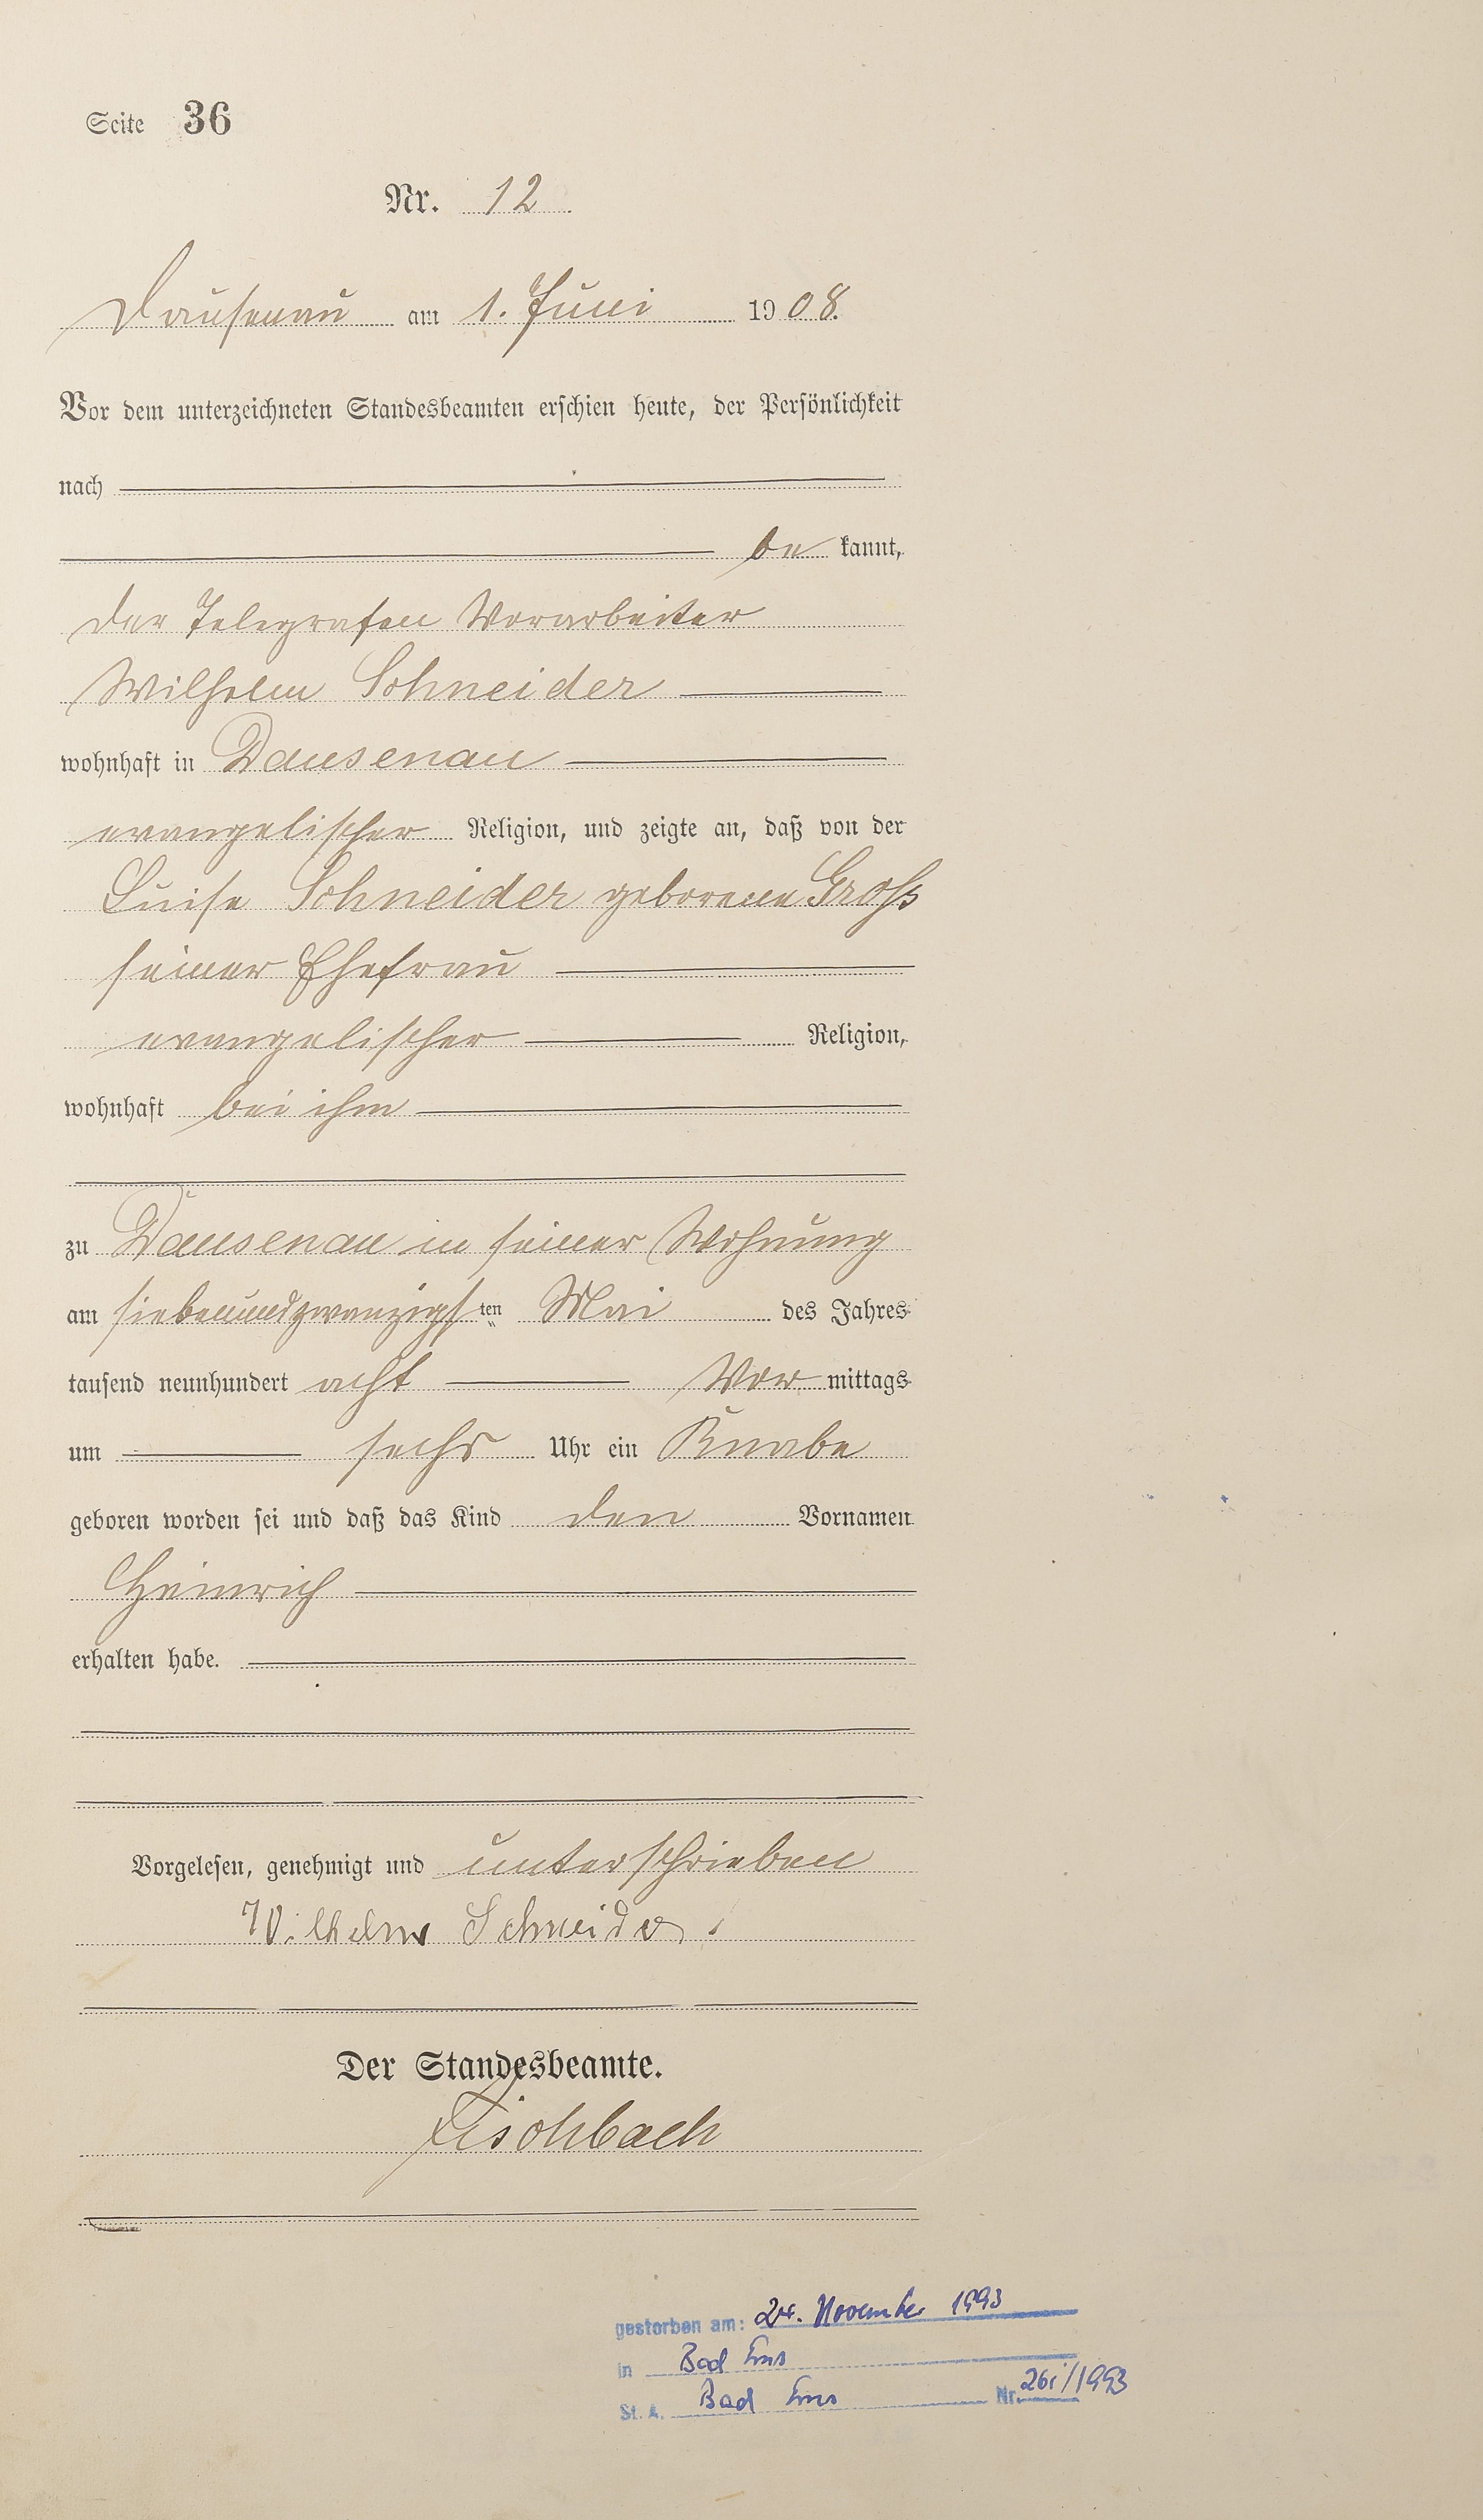 Seite 36
Nr. 12
Dausenau am 1. Juni 1908.
Vor dem unterzeichneten Standesbeamten erschien heute, der Persönlichkeit
nach
be kannt,
der Telegrafen Vorarbeiter
Wilhelm Schneider
wohnhaft in Dausenau
evangelischer Religion, und zeigte an, daß von der
Luise Schneider geborene Groß
seiner Ehefrau
evangelischer Religion,
wohnhaft bei ihm
zu Dausenau in seiner Wohnung
am siebenundzwanzigsten Mai des Jahres
tausend neunhundert acht Vor mittags
um sechs Uhr ein Knabe
geboren worden sei und daß das Kind den Vornamen
Heinrich
erhalten habe.
Vorgelesen, genehmigt und unterschrieben
Wilhelm Schneider
Der Standesbeamte.
Fischbach
gestorben am: November 1993
in Bad Ems
St. A. Bad Ems Nr.